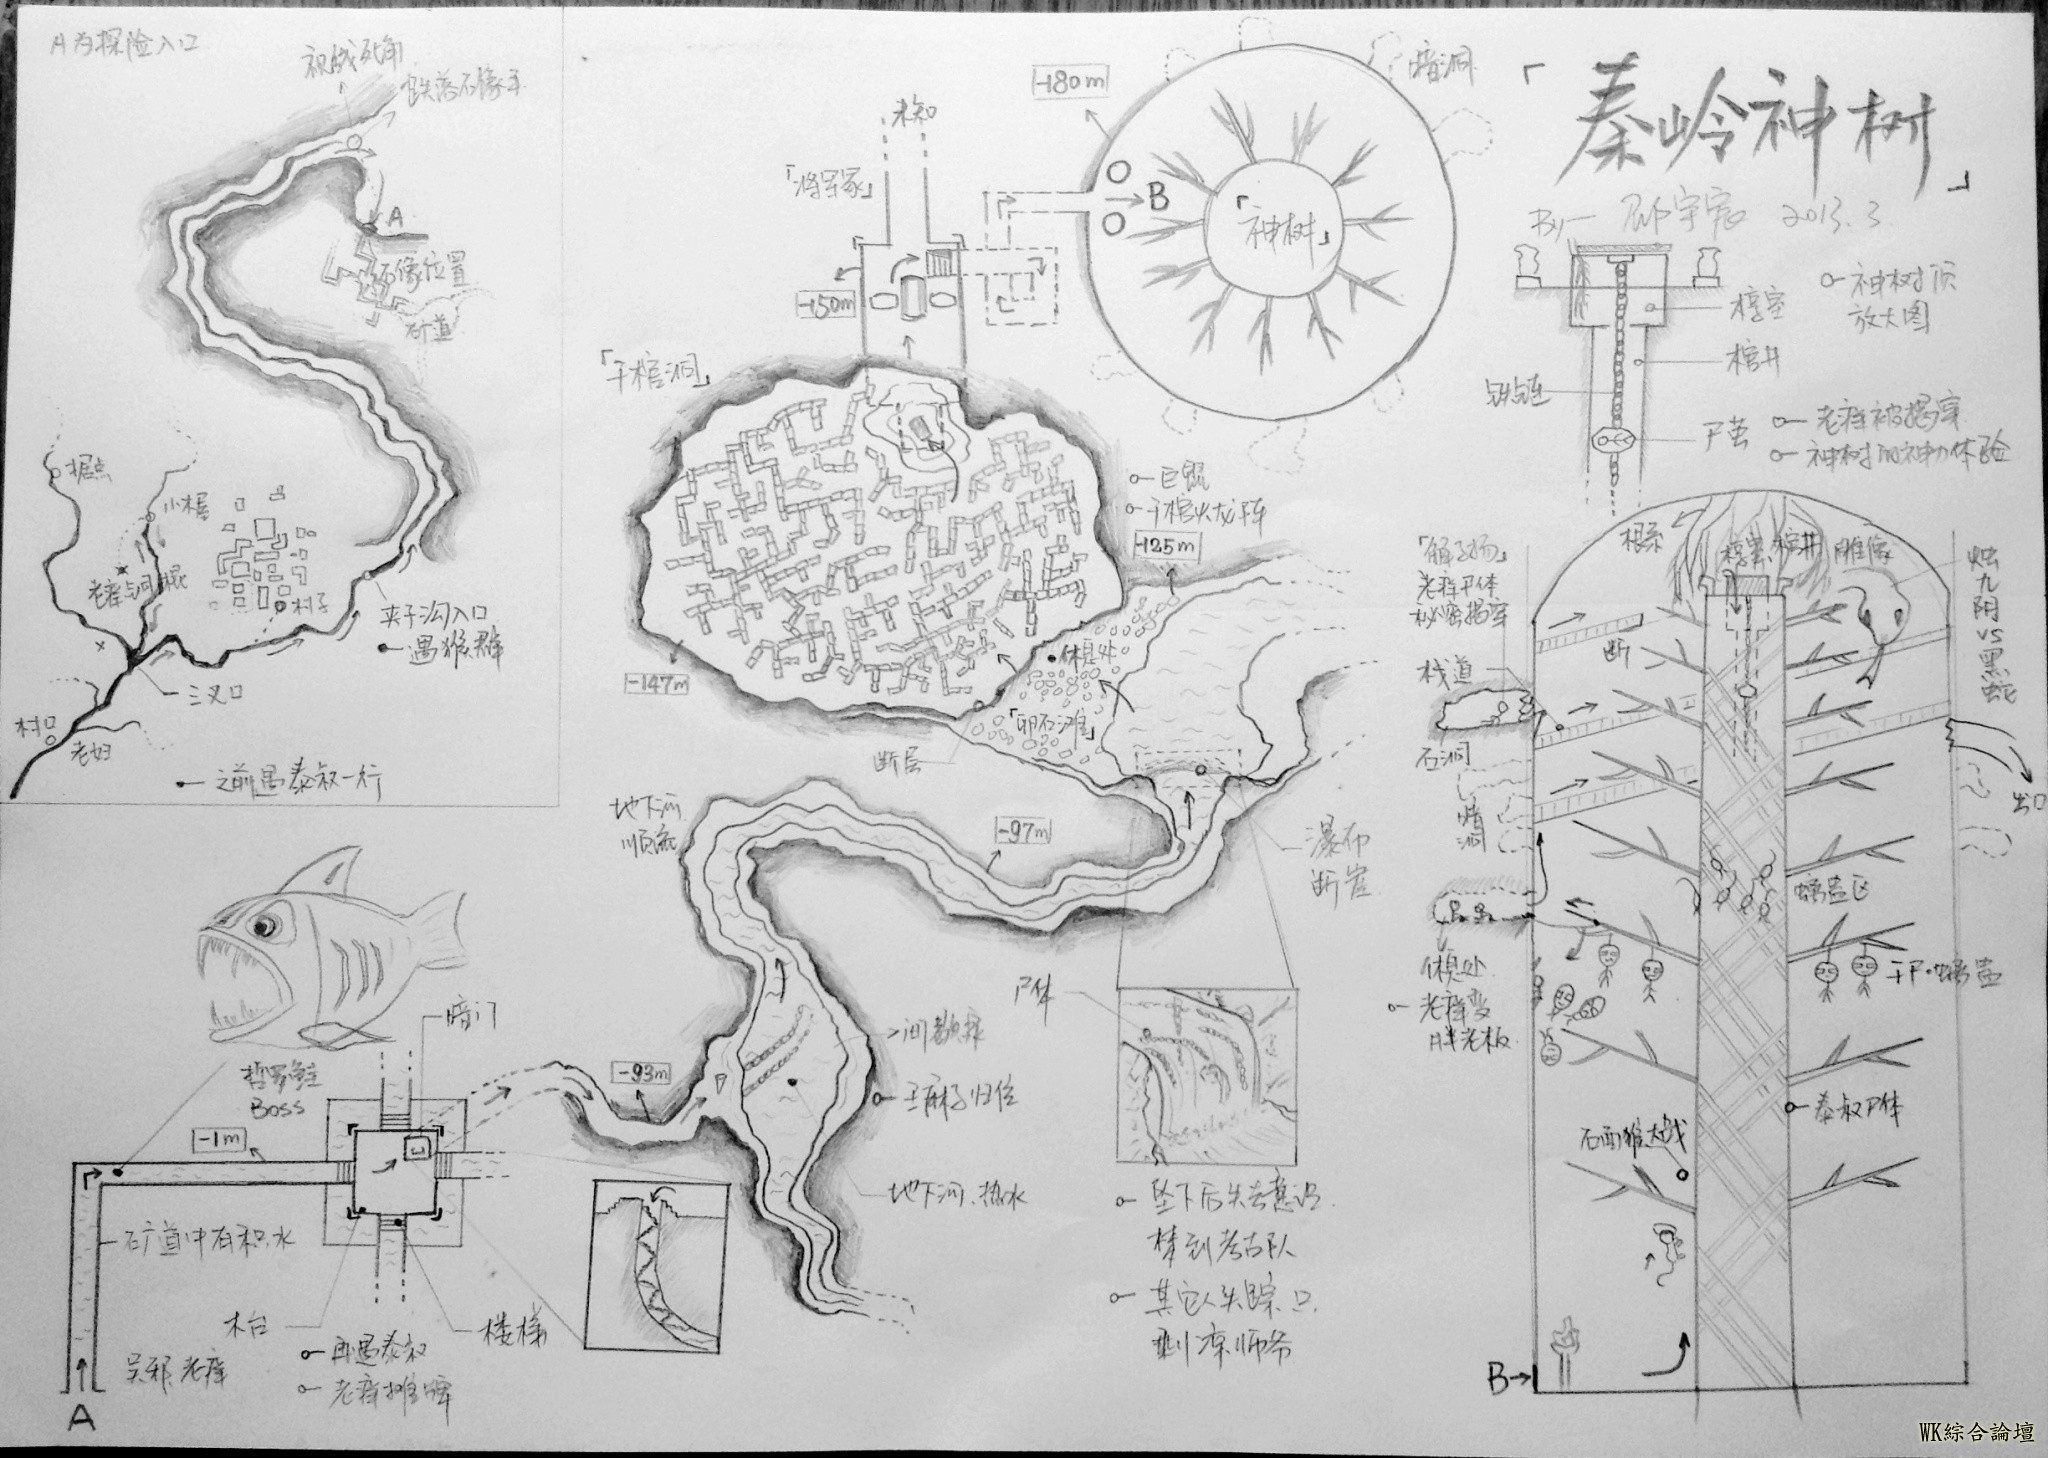 A为探险入口
视线死角
跌落石像手
A
石像位置
矿道
据点
小木屋
村子
夹子沟入口
遇猴群
三叉口
村口
老妇
之前遇泰叔一行
「秦岭神树」
By
2013.3.
神树顶
放大图
椁室
棺井
铁链
尸茧
老痒被揭穿
神树的神力体验
未知
「将军冢」
-150m
-180m
暗洞
B
「神树」
「千棺洞」
千棺火龙阵
-125m
-147m
休息处
「卵石滩」
断层
地下河
顺流
-97m
瀑布
断崖
尸体
王麻子归位
地下河、热水
-93m
坠下后失去意识
梦到考古队
其它人失踪只
剩凉师爷
哲罗鲑
Boss
暗门
-1m
矿道中有积水
木台
楼梯
再遇泰叔
老痒摊牌
吴邪、老痒
A
根系
椁室
棺井
雕像
烛九阴VS黑蛇
老痒尸体
秘密揭穿
断
栈道
石洞
暗洞
出口
螭蛊区
休息处
老痒变
胖老板
干尸·螭蛊
泰叔尸体
石面猴大战
B
WK綜合論壇